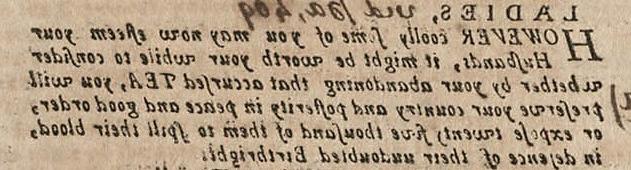 LADIES,
HOWEVER coolly ſome of you may now eſteem your
Huſbands, it might be worth your while to conſider
whether by your abandoning that accurſed TEA, you will
preſerve your country and poſterity in peace and good order,
or expoſe twenty five thouſand of them to ſpill their blood,
in defence of their undoubted Birthright.